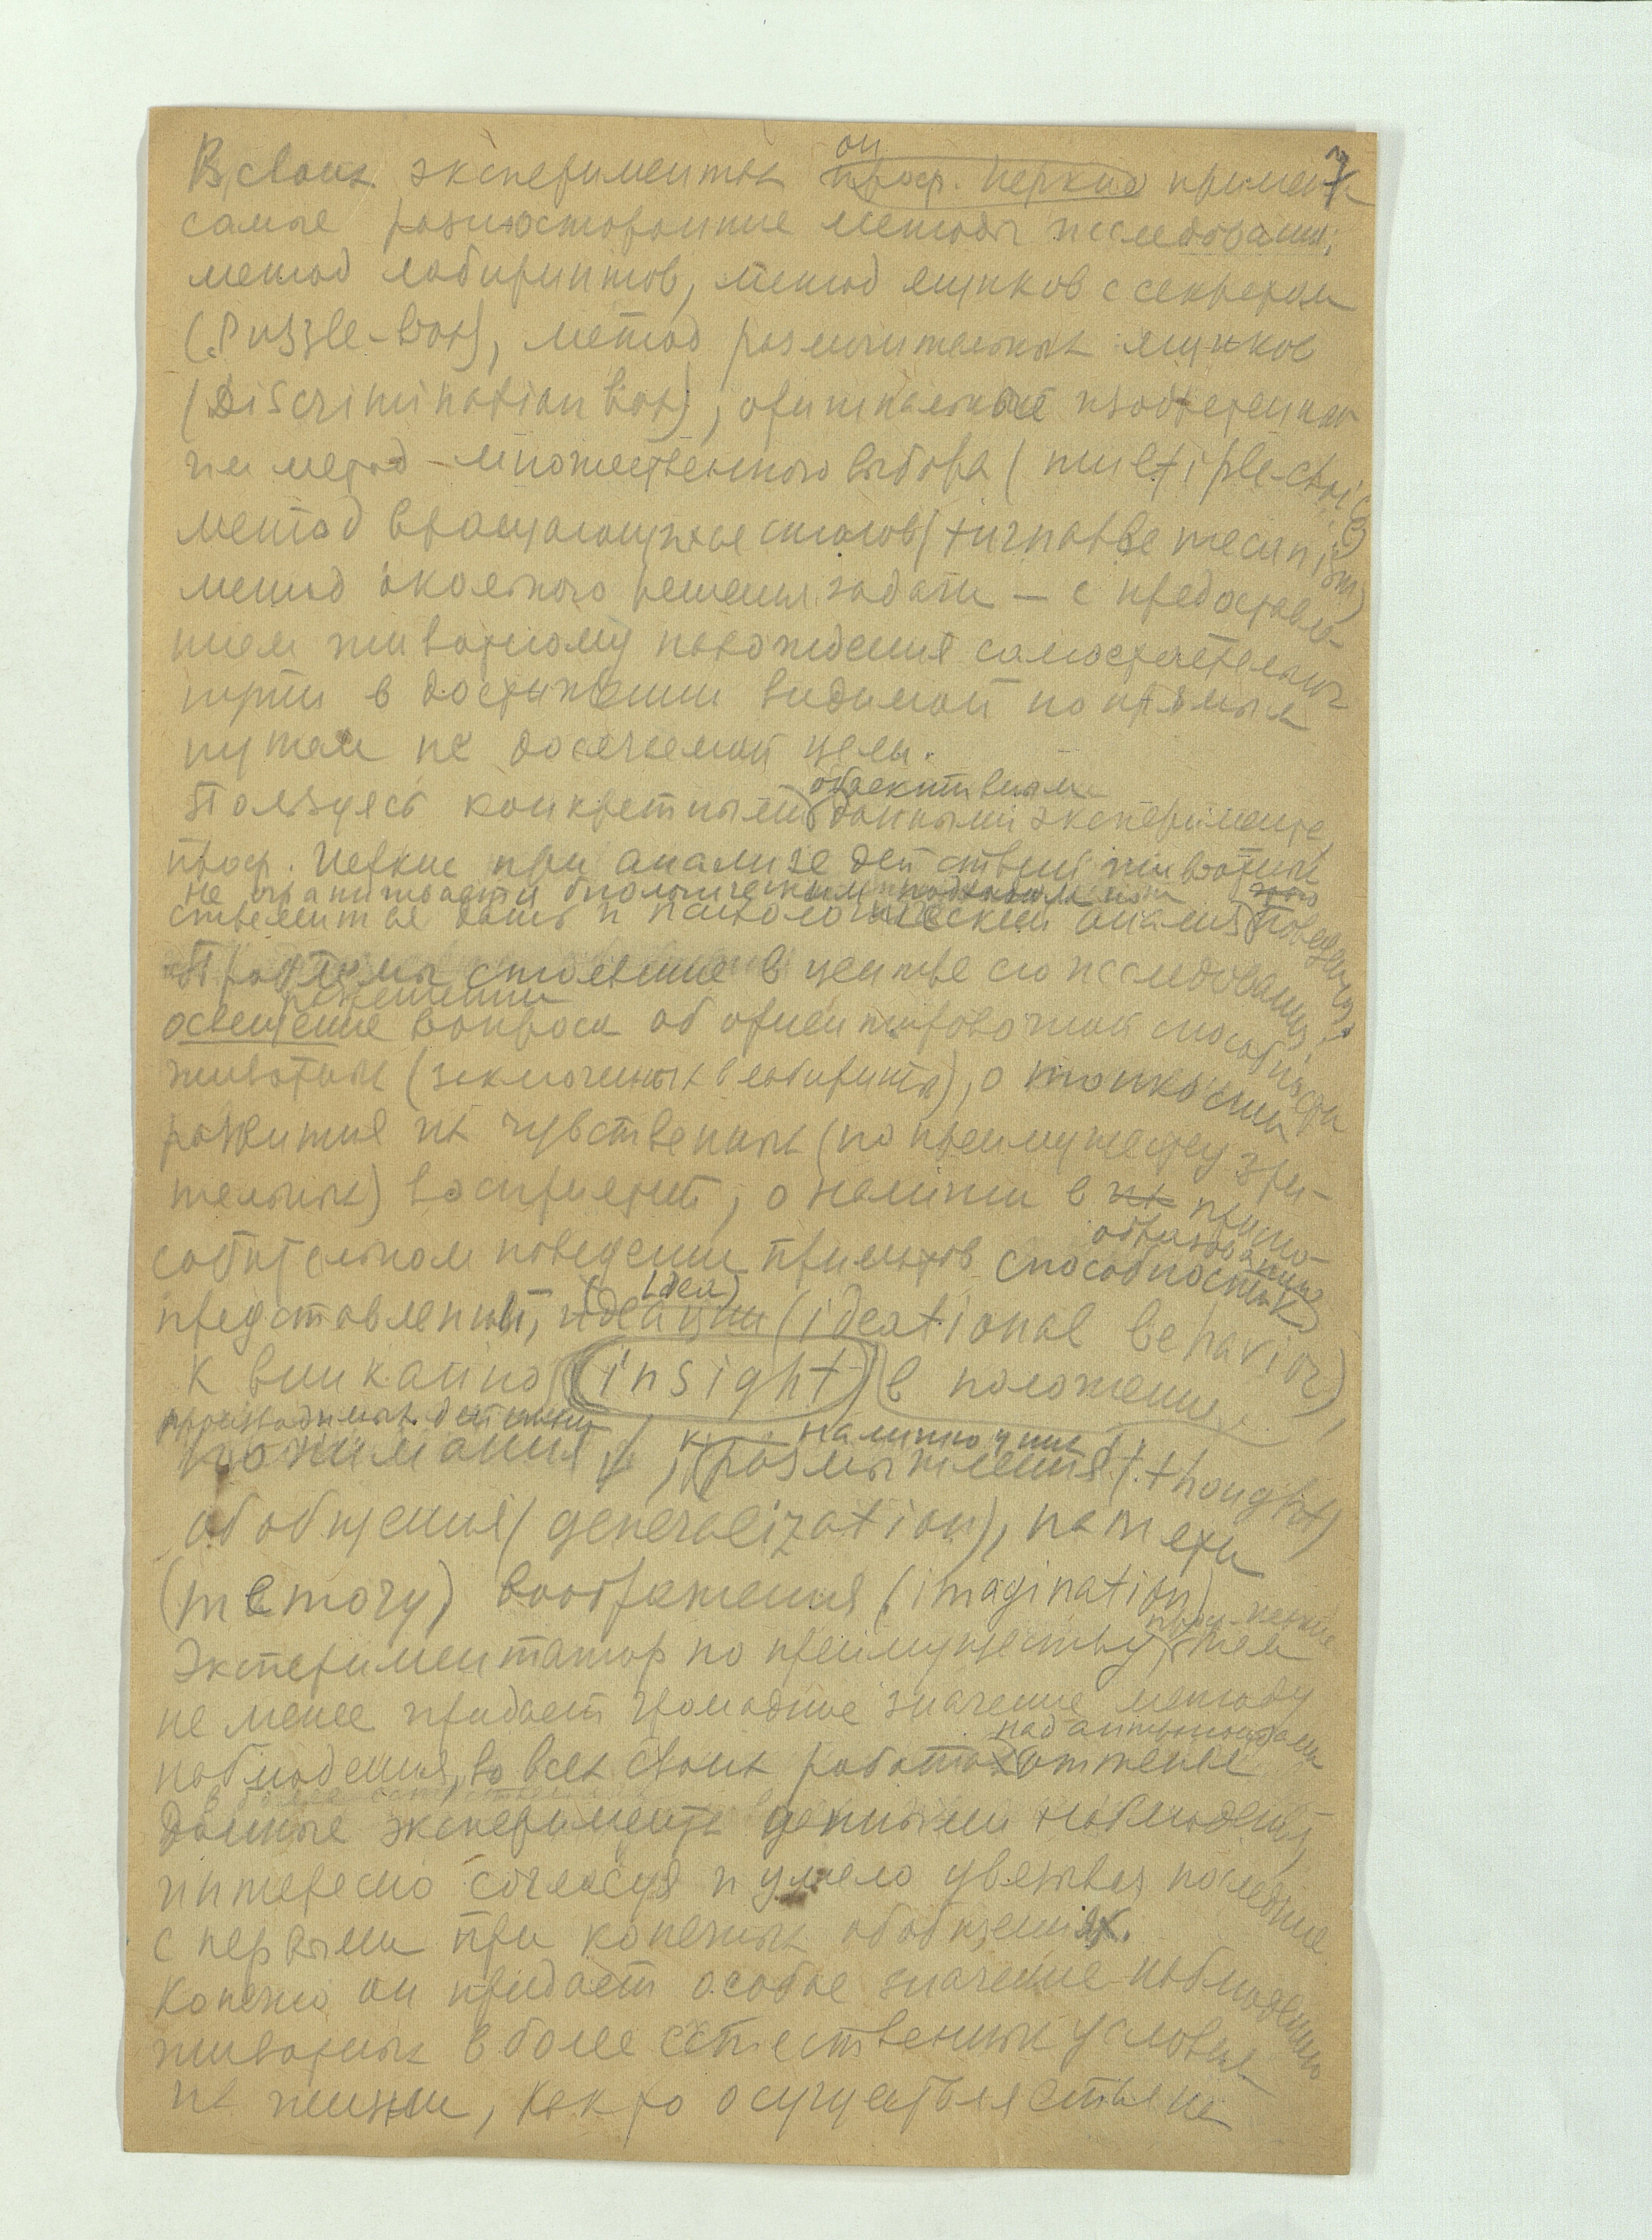 7
он
В своих экспериментах проф. Иеркис применяет
самые разносторонние методы исследования;
метод лабиринтов, метод ящиков с секретом
(Puzzle-box), метод различительных ящиков
(Discrimination box), оригинальный изобретенный
им метод множественного выбора (multiple-choice)
метод вращающихся столов (turnable mecanism)
метод окольного решения задачи — с предоставле-
нием животному нахождения самостоятельного
пути в достижении видимой но прямым
путем не досягаемой цели.
объективными
Пользуясь конкретными данными эксперимента,
проф. Иеркис при анализе действий животных
не ограничивается биологическим подходом но
стремится дать и психологический анализ поведения.
Проблемы стоявшие в центре его исследования:
разрешение
освещение вопроса об ориентировочной способности
животных (заключенных в лабиринты), о тонкости
развития их чувственных (по преимуществу зри-
тельных) восприятий, о наличии в их приспо-
собительном поведении приматов способности к
образованию
представлений, идеации (idea) (ideational behavior),
к вниканию (insight) в положение,
производимых действий
понимания, к размышлению (thought)
наличию у них
обобщения (generalization), памяти
(memory) воображения (imagination)
проф. Иеркис
Экспериментатор по преимуществу, тем
не менее придает громадное значение методу
над антропоидами
наблюдения, во всех своих работах
данные эксперимента данными наблюдения,
интересно согласуя и умело увязывая последние
с первыми при конечных обобщениях.
Конечно он придает особое значение наблюдению
животных в более естественных условиях
их жизни, как то осуществляется не